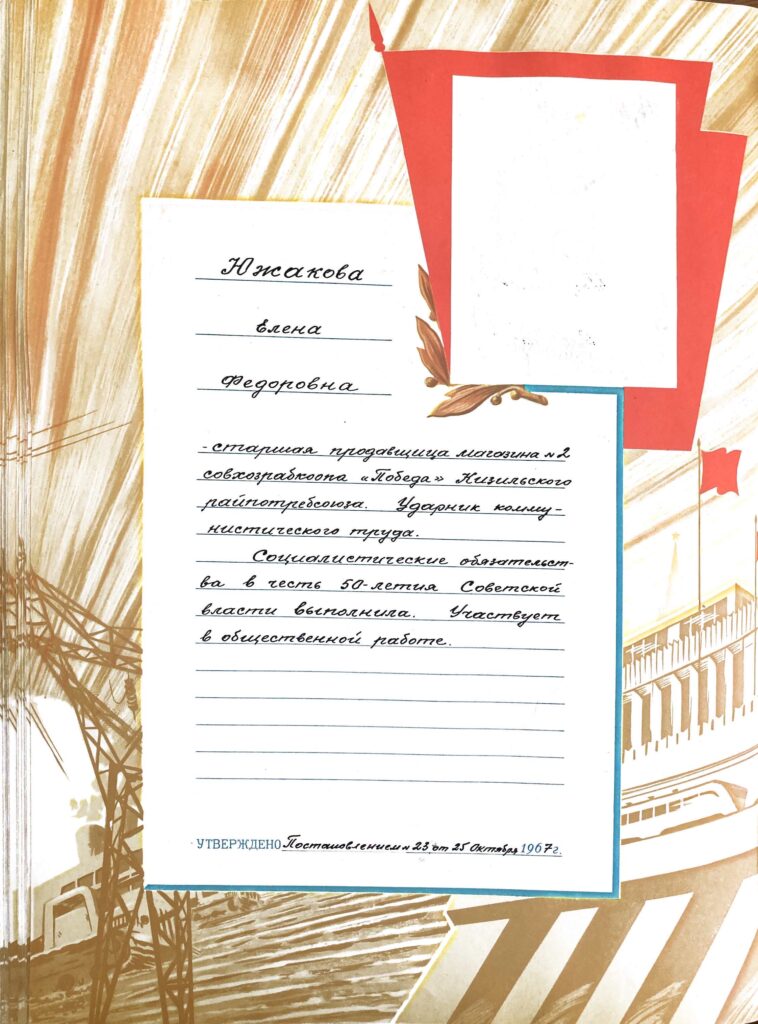 Южакова
Елена
Федоровна
- старшая продавщица магазина №2
совхозрабкоопа «Победа» Кизильского
райпотребсоюза. Ударник комму-
нистического труда.
Социалистические обязательст-
ва в честь 50-летия Советской
власти выполнила. Участвует
в общественной работе.
УТВЕРЖДЕНО Постановлением № 23 от 25 октября 1967 г.